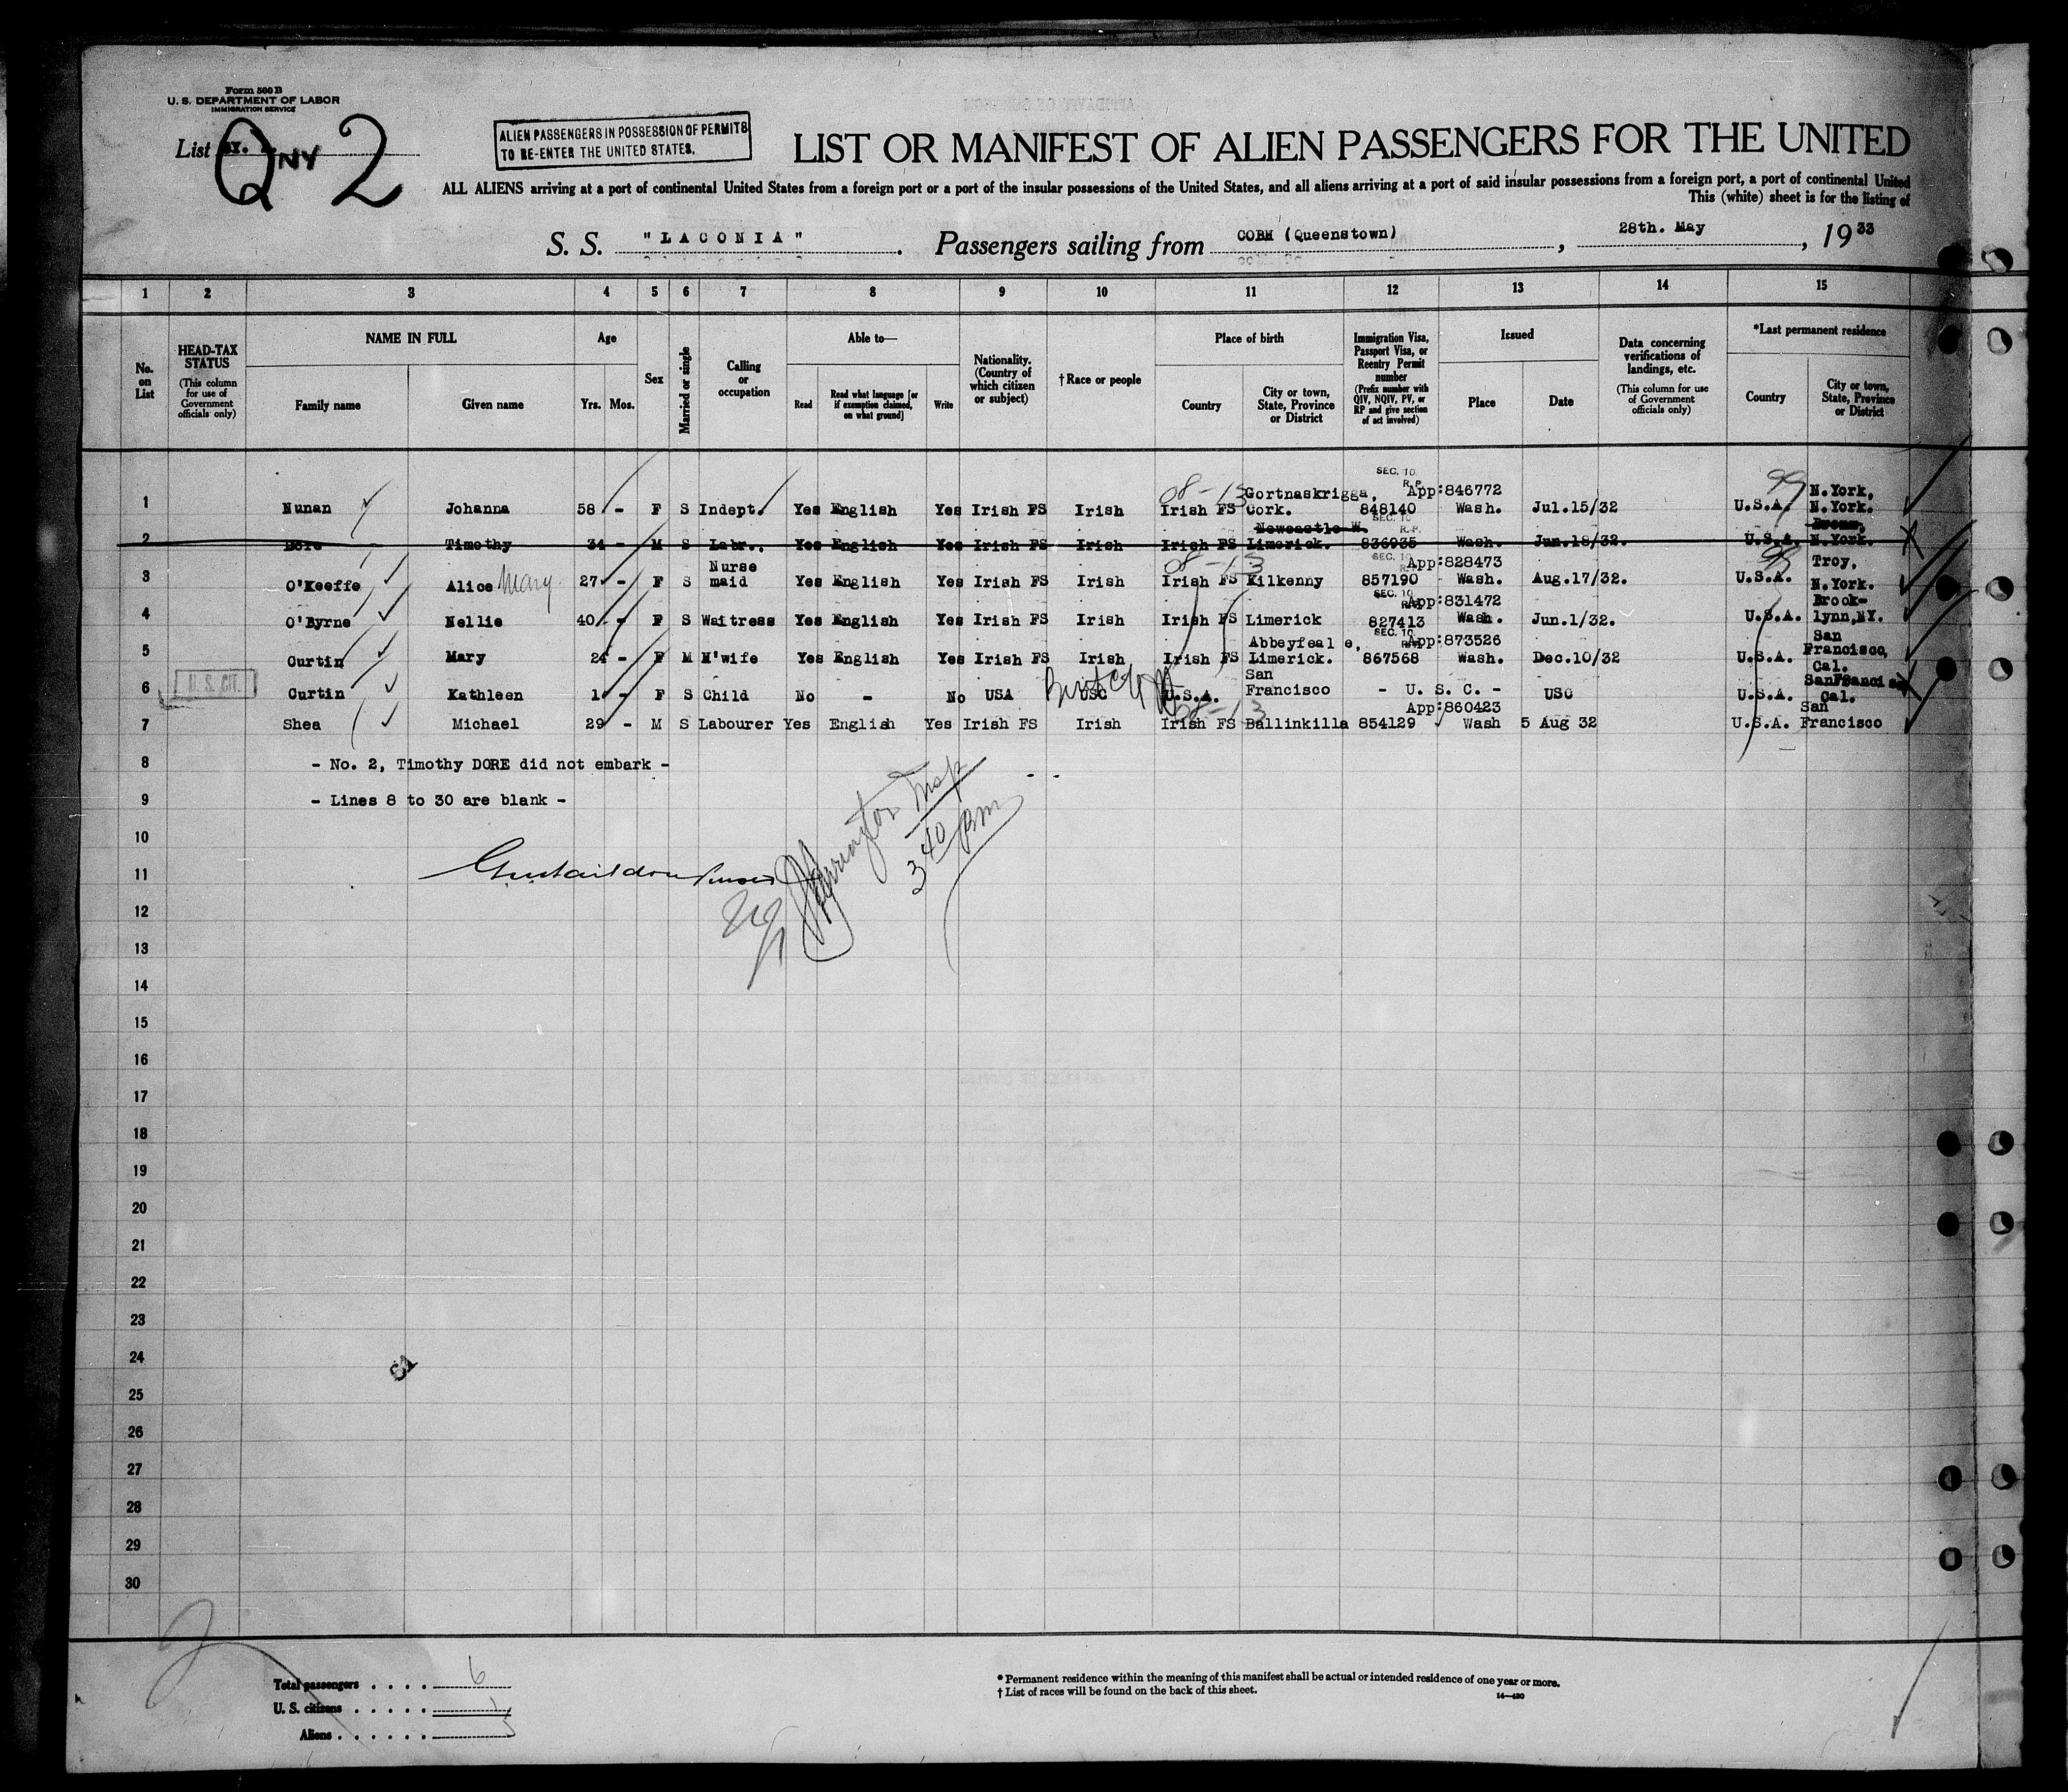 Form 500 B
U. S. DEPARTMENT OF LABOR
IMMIGRATION SERVICE
List
Q NY 2
ALIEN PASSENGERS IN POSSESSION OF PERMITS
TO RE-ENTER THE UNITED STATES.
LIST OR MANIFEST OF ALIEN PASSENGERS FOR THE UNITED
ALL ALIENS arriving at a port of continental United States from a foreign port or a port of the insular possessions of the United States, and all aliens arriving at a port of said insular possessions from a foreign port, a port of continental United
This (white) sheet is for the listing of
S. S. "LACONIA". Passengers sailing from COBH (Queenstown), 28th. May, 1933
1 2 3 4 5 6 7 8 9 10 11 12 13 14 15
No. on List
HEAD-TAX STATUS (This column for use of Government officials only)
NAME IN FULL
Family name
Given name
Age
Yrs. Mos.
Sex
Married or single
Calling or occupation
Able to—
Read
Read what language [or if exemption claimed, on what ground]
Write
Nationality. (Country of which citizen or subject)
† Race or people
Place of birth
Country
City or town, State, Province or District
Immigration Visa, Passport Visa, or Reentry Permit number (Prefix number with QIV, NQIV, PV, or RP and give section of act involved)
Issued
Place
Date
Data concerning verifications of landings, etc. (This column for use of Government officials only)
*Last permanent residence
Country
City or town, State, Province or District
1 Nunan Johanna 58 - F S Indept. Yes English Yes Irish FS Irish 08-13 Irish FS Gortnaskrigga, Cork. SEC. 10 R.P. App:846772 848140 Wash. Jul.15/32 99 U.S.A. N.York, N.York.
2 Dore Timothy 34 - M S Labr., Yes English Yes Irish FS Irish Irish FS Newcastle W. Limerick. SEC. 10 R.P. 836935 Wash. Jun.18/32. U.S.A. Bronx, N.York.
3 O'Keeffe Alice Mary 27 - F S Nurse maid Yes English Yes Irish FS Irish 08-13 Irish FS Kilkenny SEC. 10 App:828473 857190 Wash. Aug.17/32. U.S.A. Troy, N.York.
4 O'Byrne Nellie 40 - F S Waitress Yes English Yes Irish FS Irish Irish FS Limerick SEC. 10 App:831472 827413 Wash. Jun.1/32. U.S.A. Brook-lynn,NY.
5 Curtin Mary 24 - F M H'wife Yes English Yes Irish FS Irish Irish FS Abbeyfeale, Limerick. SEC. 10 App:873526 867568 Wash. Dec.10/32 U.S.A. San Francisco, Cal.
6 U. S. CIT. Curtin Kathleen 1 - F S Child No - No USA USC U.S.A. San Francisco - U. S. C. - USC U.S.A. San Francisco Cal.
7 Shea Michael 29 - M S Labourer Yes English Yes Irish FS Irish 08-13 Irish FS Ballinkilla App:860423 854129 Wash 5 Aug 32 U.S.A. San Francisco
8 - No. 2, Timothy DORE did not embark -
9 - Lines 8 to 30 are blank -
Insp
3 40 pm
10
11
12
13
14
15
16
17
18
19
20
21
22
23
24
25
26
27
28
29
30
Total passengers . . . . 6
U. S. citizens . . . . . 1
Aliens . . . . . . 5
* Permanent residence within the meaning of this manifest shall be actual or intended residence of one year or more.
† List of races will be found on the back of this sheet.
14—420